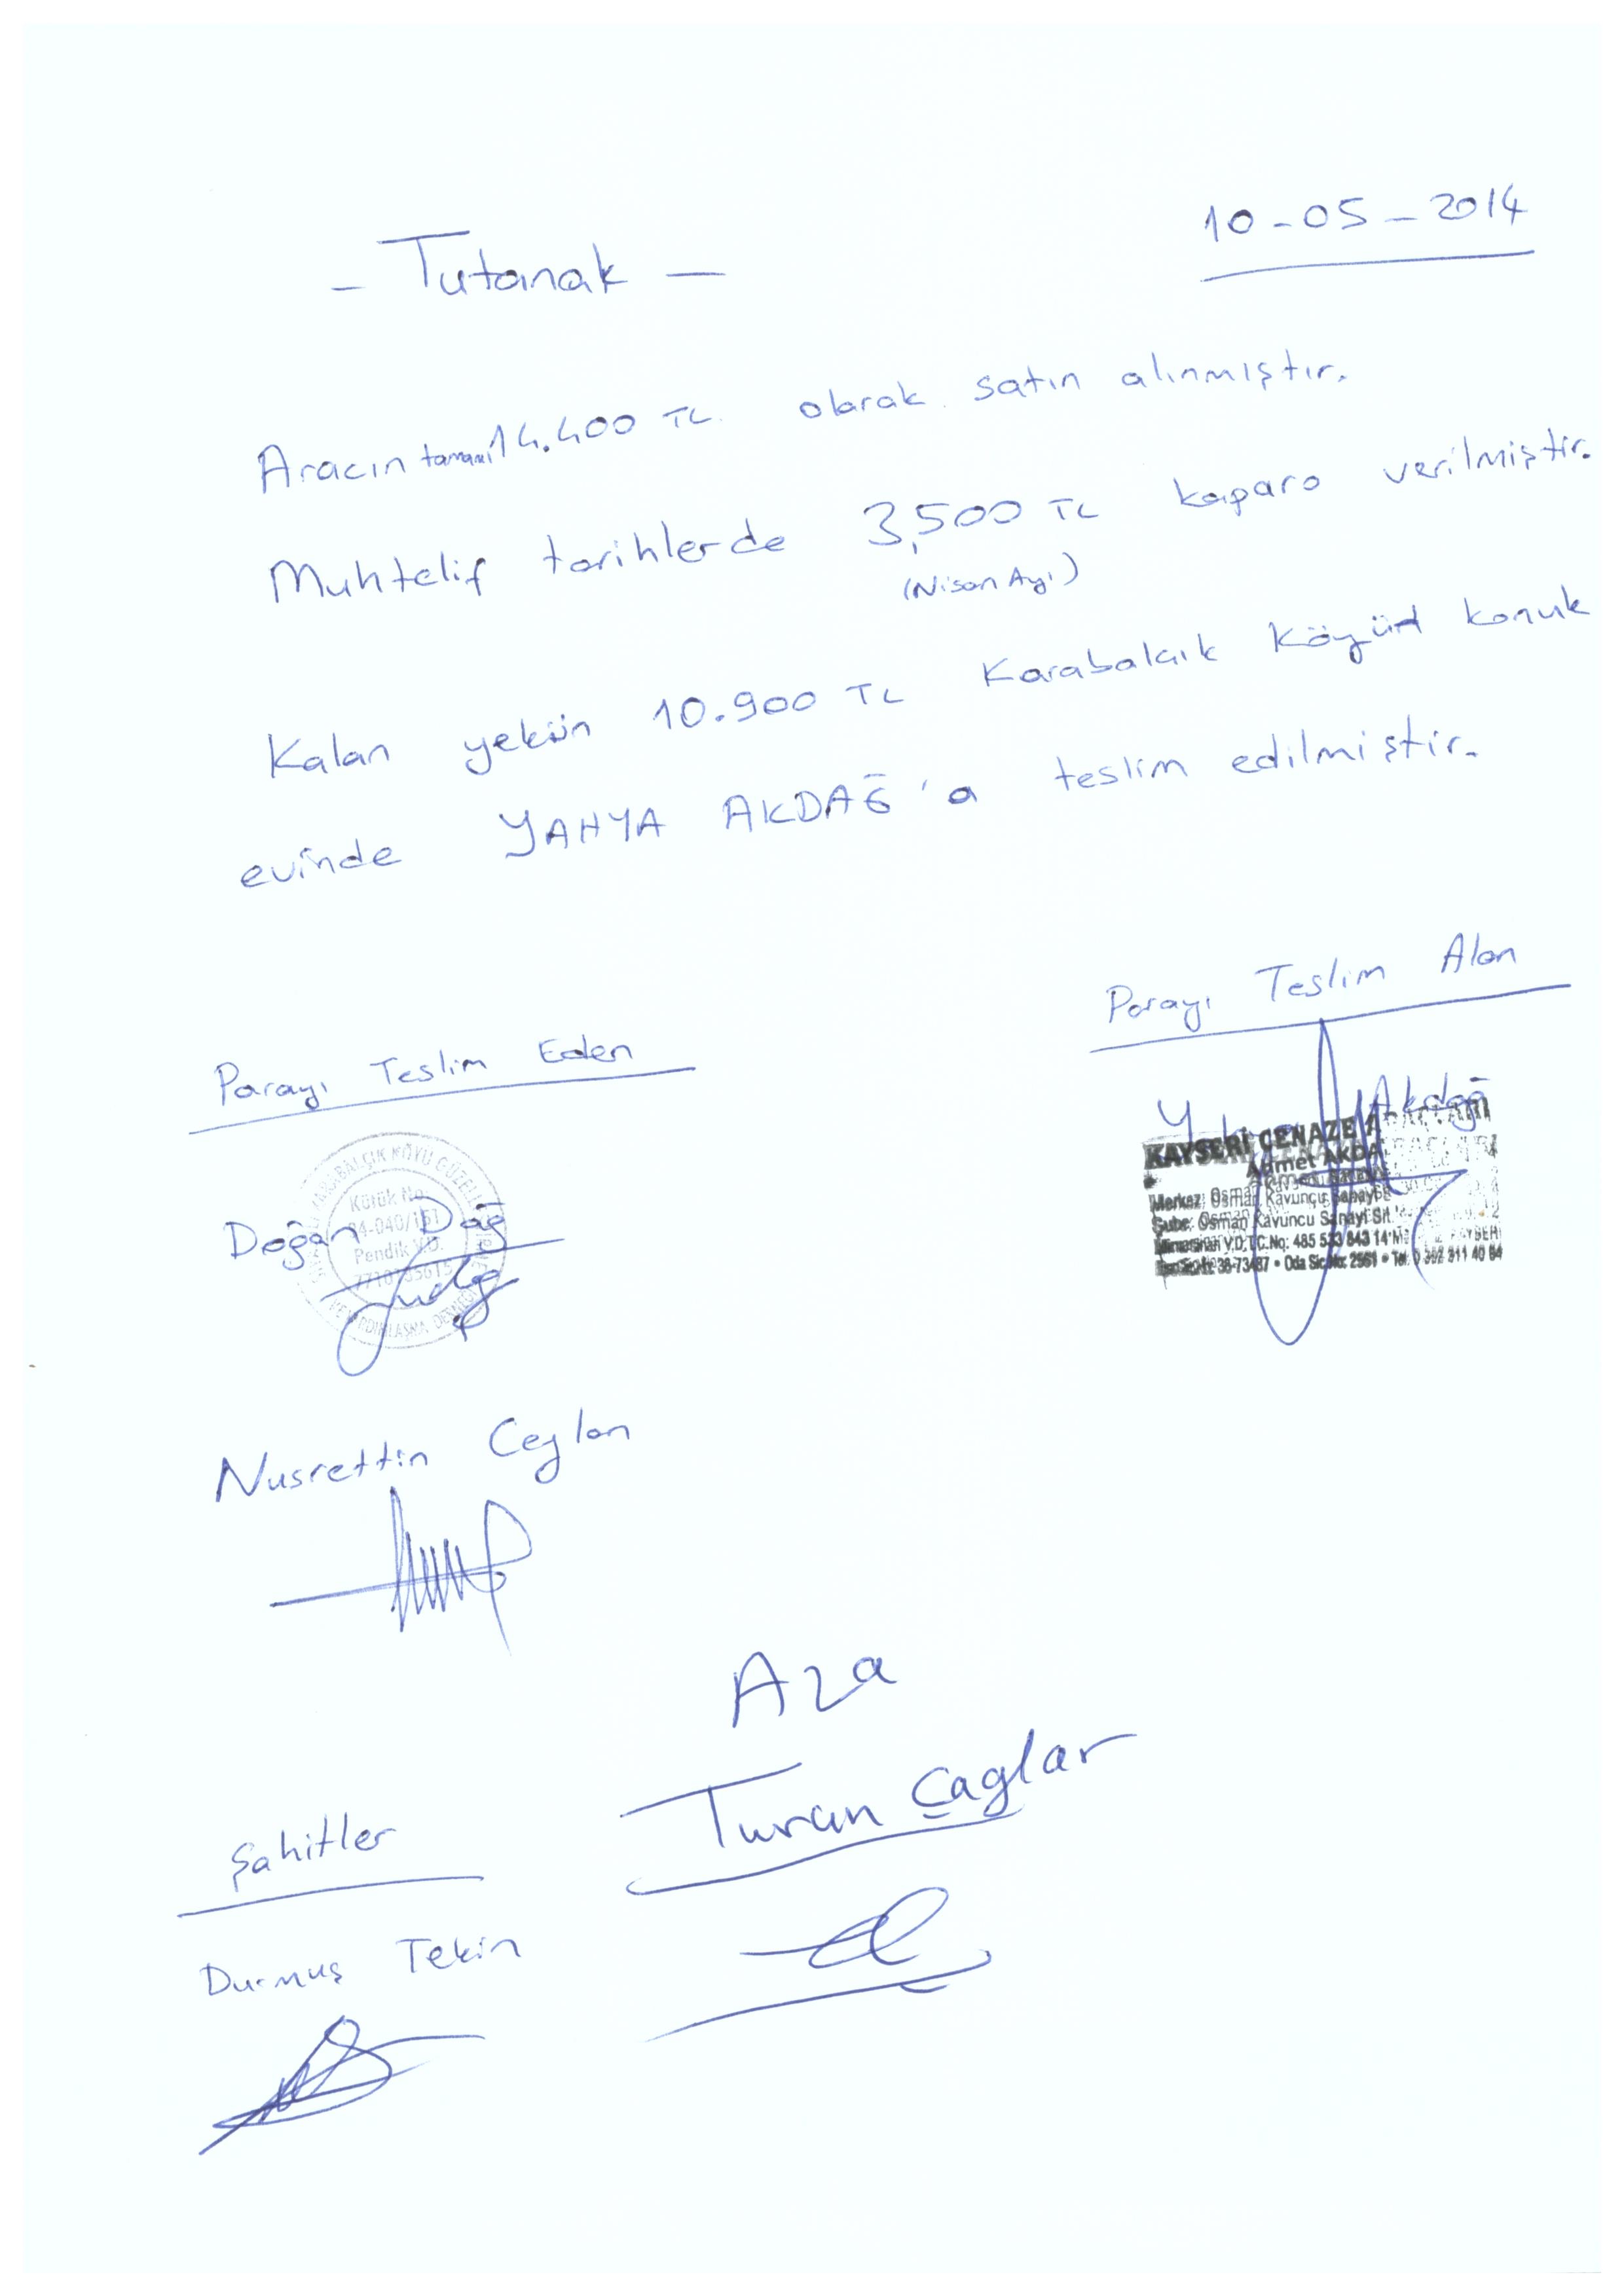 10-05-2014
- Tutanak -
Aracın tamamı 14.400 TL. olarak satın alınmıştır.
Muhtelif tarihlerde 3,500 TL kaparo verilmiştir.
(Nisan Ayı)
Kalan yekün 10.900 TL Karabalçık Köyün konuk
evinde YAHYA AKDAĞ'a teslim edilmiştir.
Parayı Teslim Alan
Akdağ
KAYSERİ CENAZE ARAÇLARI
Ahmet AKDA
Merkez: Osman Kavuncu Sanayi
Şube: Osman Kavuncu Sanayi Sit.
V.D.T.C.No: 485 533 843 14
38-73487 • Oda Sic.No: 2561 • Tel: 0 352 311 40 64
Parayı Teslim Eden
KARABALÇIK KÖYÜ
Kütük No:
34-040/151
Pendik V.D.
Doğan Dağ
Nusrettin Ceylan
Aza
Turan Çaglar
Şahitler
Durmuş Tekin